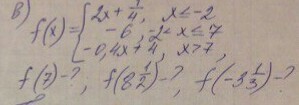 в) f(x) = { 2x + 1/4, x ≤ -2
-6, -2 < x ≤ 7
-0,4x + 4, x > 7,
f(7) - ?, f(8 1/2) - ?, f(-3 1/3) - ?